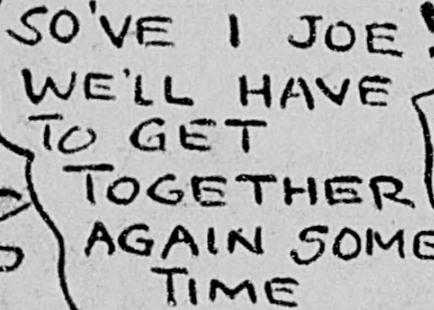 SO'VE I JOE!
WE'LL HAVE
TO GET
TOGETHER
AGAIN SOME
TIME